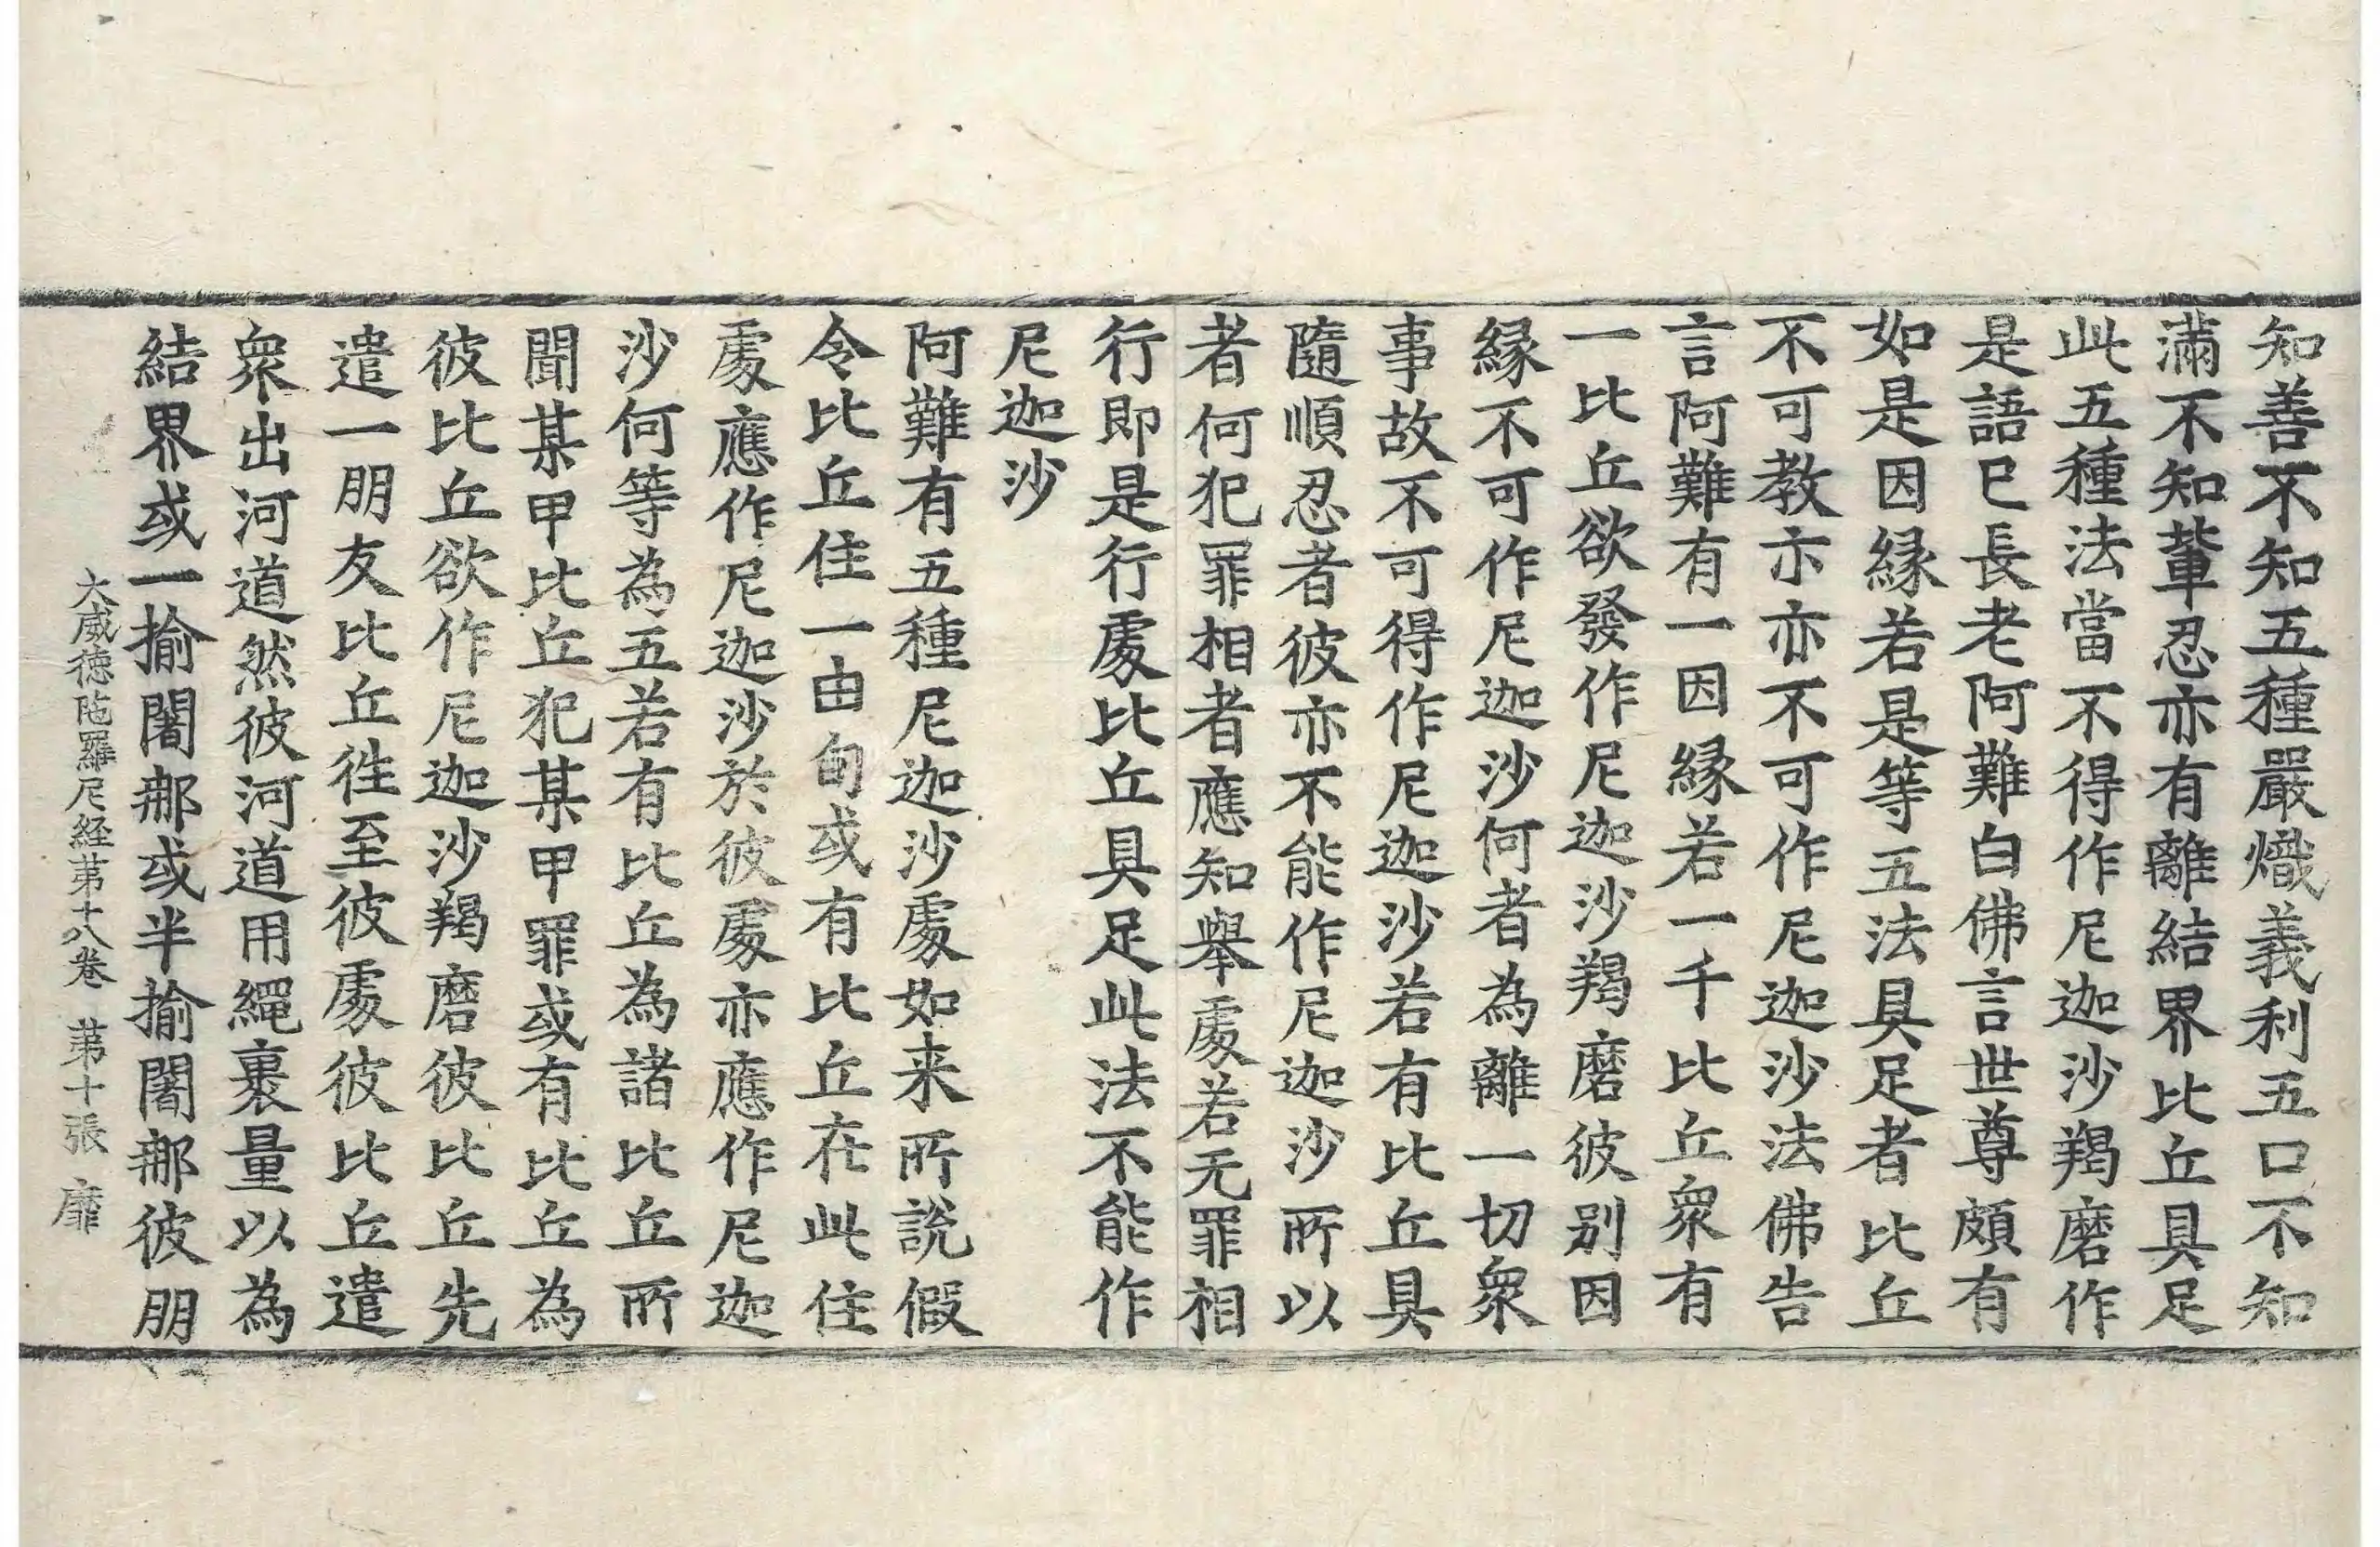 知善不知五種嚴熾義利五口不知
滿不知輩忍亦有離結界比丘具足
此五種法當不得作尼迦沙羯磨作
是語已長老阿難白佛言世尊頗有
如是因縁若是等五法具足者比丘
不可教示亦不可作尼迦沙法佛告
言阿難有一因縁若一千比丘衆有
一比丘欲發作尼迦沙羯磨彼别因
縁不可作尼迦沙何者為離一切衆
事故不可得作尼迦沙若有比丘具
隨順忍者彼亦不能作尼迦沙所以
者何犯罪相者應知舉處若无罪相
行即是行處比丘具足此法不能作
尼迦沙
阿難有五種尼迦沙處如来所說假
令比丘住一由旬或有比丘在此住
處應作尼迦沙於彼處亦應作尼迦
沙何等為五若有比丘為諸比丘所
聞某甲比丘犯某甲罪或有比丘為
彼比丘欲作尼迦沙羯磨彼比丘先
遣一朋友比丘徃至彼處彼比丘遣
衆出河道然彼河道用繩裹量以為
結界或一揄闍𨚗或半揄闍𨚗彼朋
大威徳陁羅尼経苐十八卷 苐十張 靡